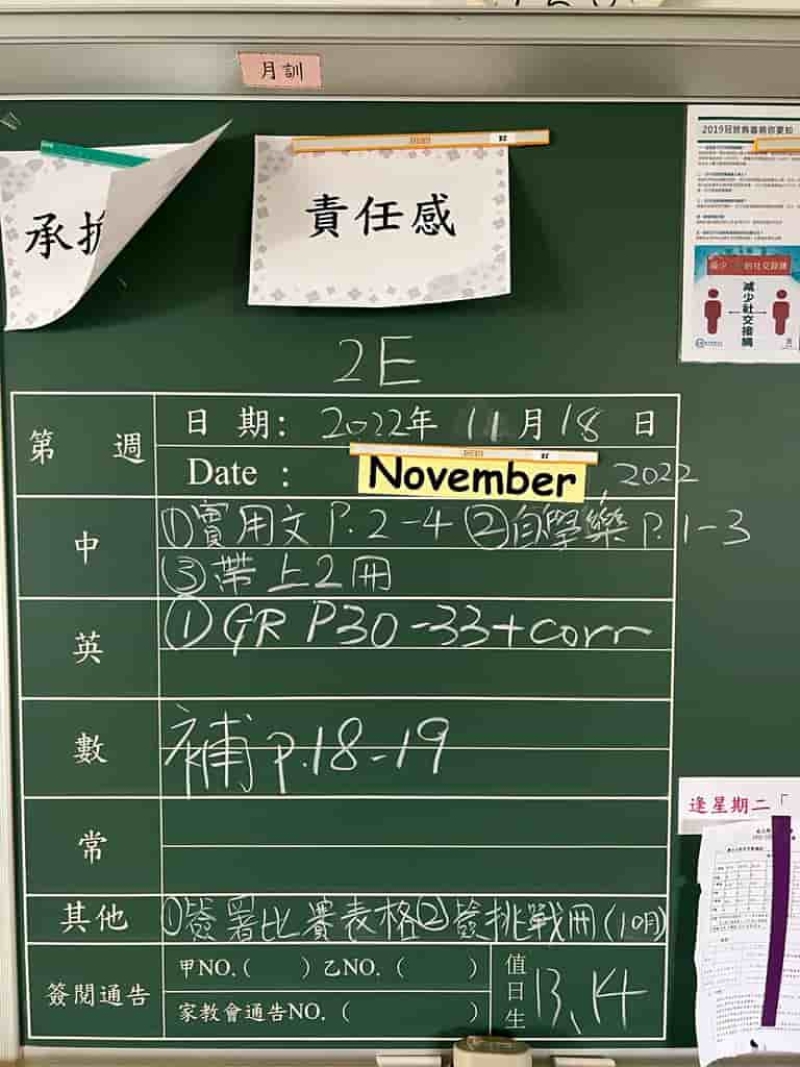 月訓
承
責任感
2019冠狀病毒
減少社交接觸
2E
第 週
日期: 2022年 11月18日
Date : November, 2022
中
①實用文 P.2-4 ②自學樂 P.1-3
③帶上2冊
英
①GR P30-33+corr
數
補 p.18-19
常
其他
①簽署比賽表格②簽挑戰冊(10月)
簽閱通告
甲NO.( ) 乙NO.( )
家教會通告NO.( )
值日生
13、14
逢星期二「